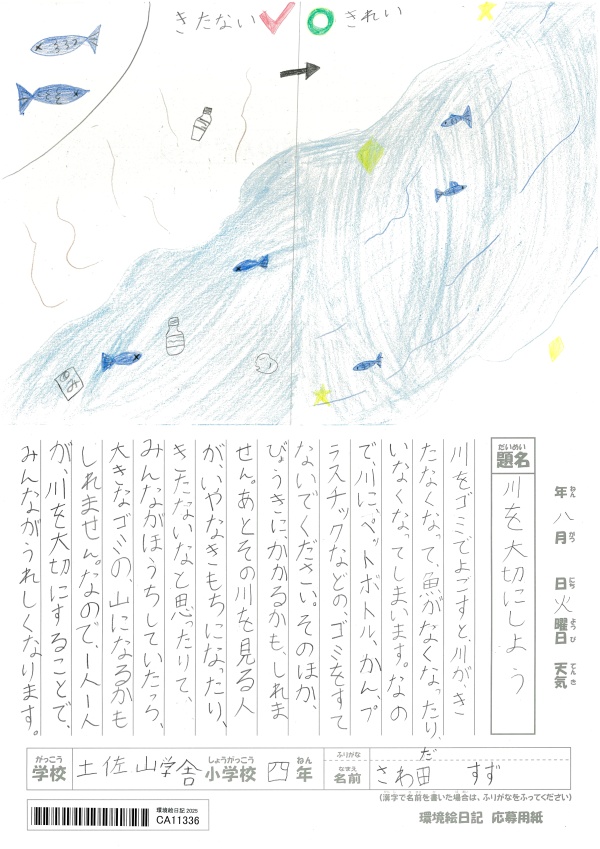 きたない
きれい
ゴミ
題名 だいめい
川を大切にしよう
年 ねん 八月 がつ 日 にち 火曜日 ようび 天気 てんき
川をゴミでよごすと、川が、き
たなくなって、魚がなくなったり、
いなくなってしまいます。なの
で、川に、ペットボトル、かん、プ
ラスチックなどの、ゴミをすて
ないでください。そのほか、
びょうきに、かかるかも、しれま
せん。あとその川を見る人
が、いやなきもちになったり、
きたないなと思ったりて、
みんながほうちしていたら、
大きなゴミの、山になるかも
しれません。なので、一人一人
が、川を大切にすることで、
みんながうれしくなります。
学校 がっこう 土佐山学舎 小学校 しょうがっこう 四年 ねん
ふりがな だ
名前 なまえ さわ田 すず
(漢字で名前を書いた場合は、ふりがなをふってください)
環境絵日記 応募用紙
環境絵日記 2025
CA11336